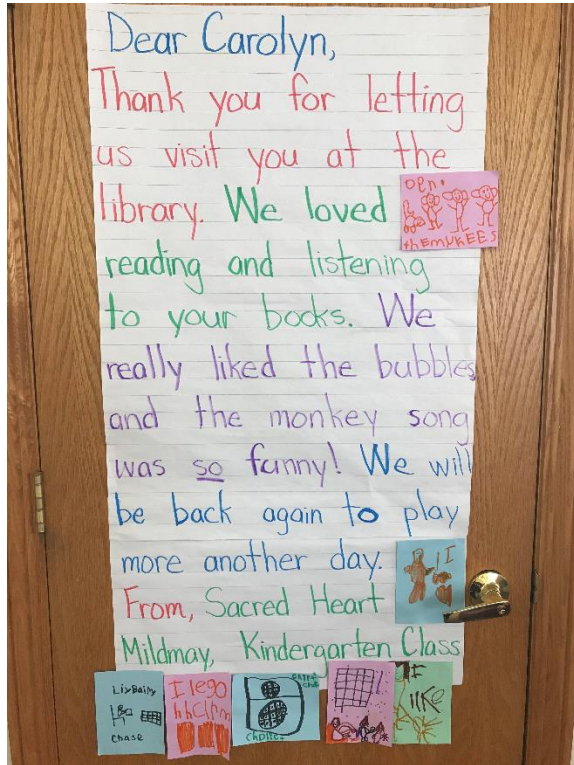 Dear Carolyn,
Thank you for letting
us visit you at the
library. We loved
reading and listening
to your books. We
really liked the bubbles
and the monkey song
was so funny! We will
be back again to play
more another day.
From, Sacred Heart
Mildmay, Kindergarten Class
theMUKEES
I
LiyBaiRy
Chase
I lego
I
like